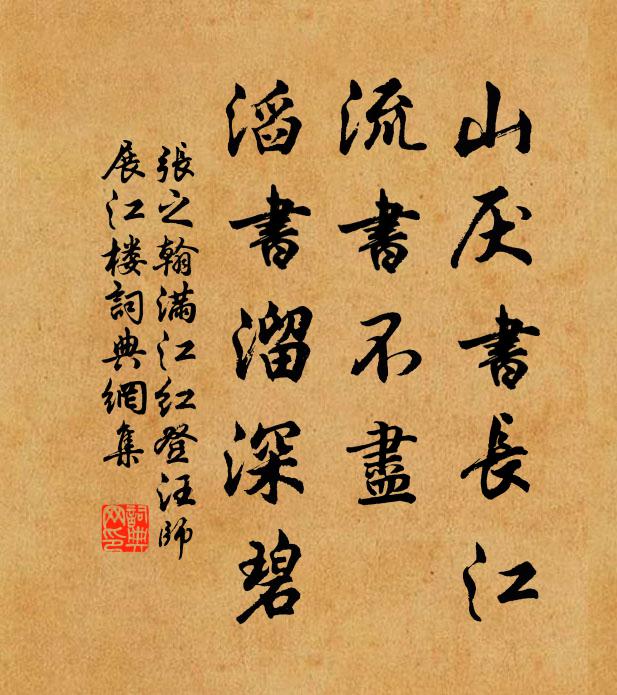 山灰書長江
流書不盡
滔書溜深碧
張之翰滿江紅登汪師
展江楼詞典網集
詞典网印